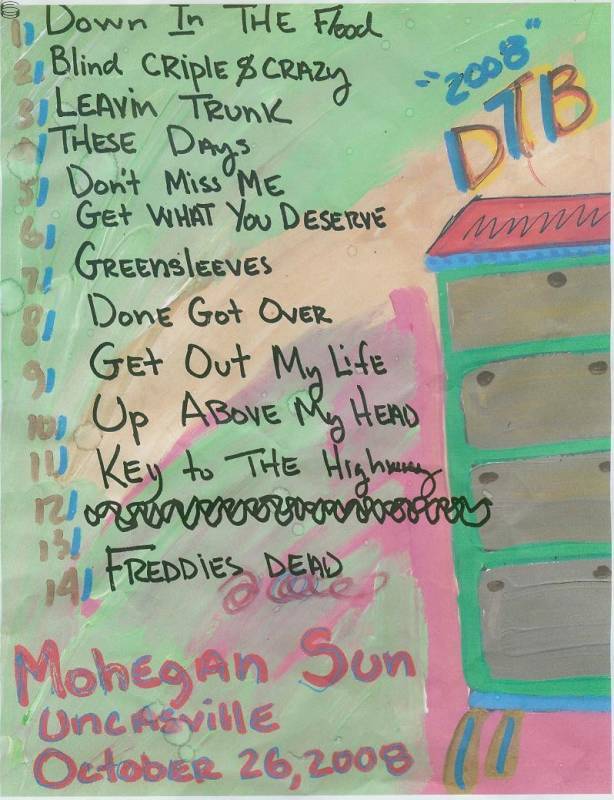 1) Down In THE Flood
2) Blind CRIPLE & CRAZY
3) LEAVIN TRUNK
4) THESE Days
5) Don't Miss ME
6) Get WHAT You DESERVE
7) GREENSLEEVES
8) DONE Got OVER
9) GET Out My Life
10) Up ABOVE My HEAD
11) KEY to THE Highway
12)
13)
14) FREDDIES DEAD
"2008"
DTB
MOHEGAN SUN
UNCASVILLE
OCTOBER 26, 2008